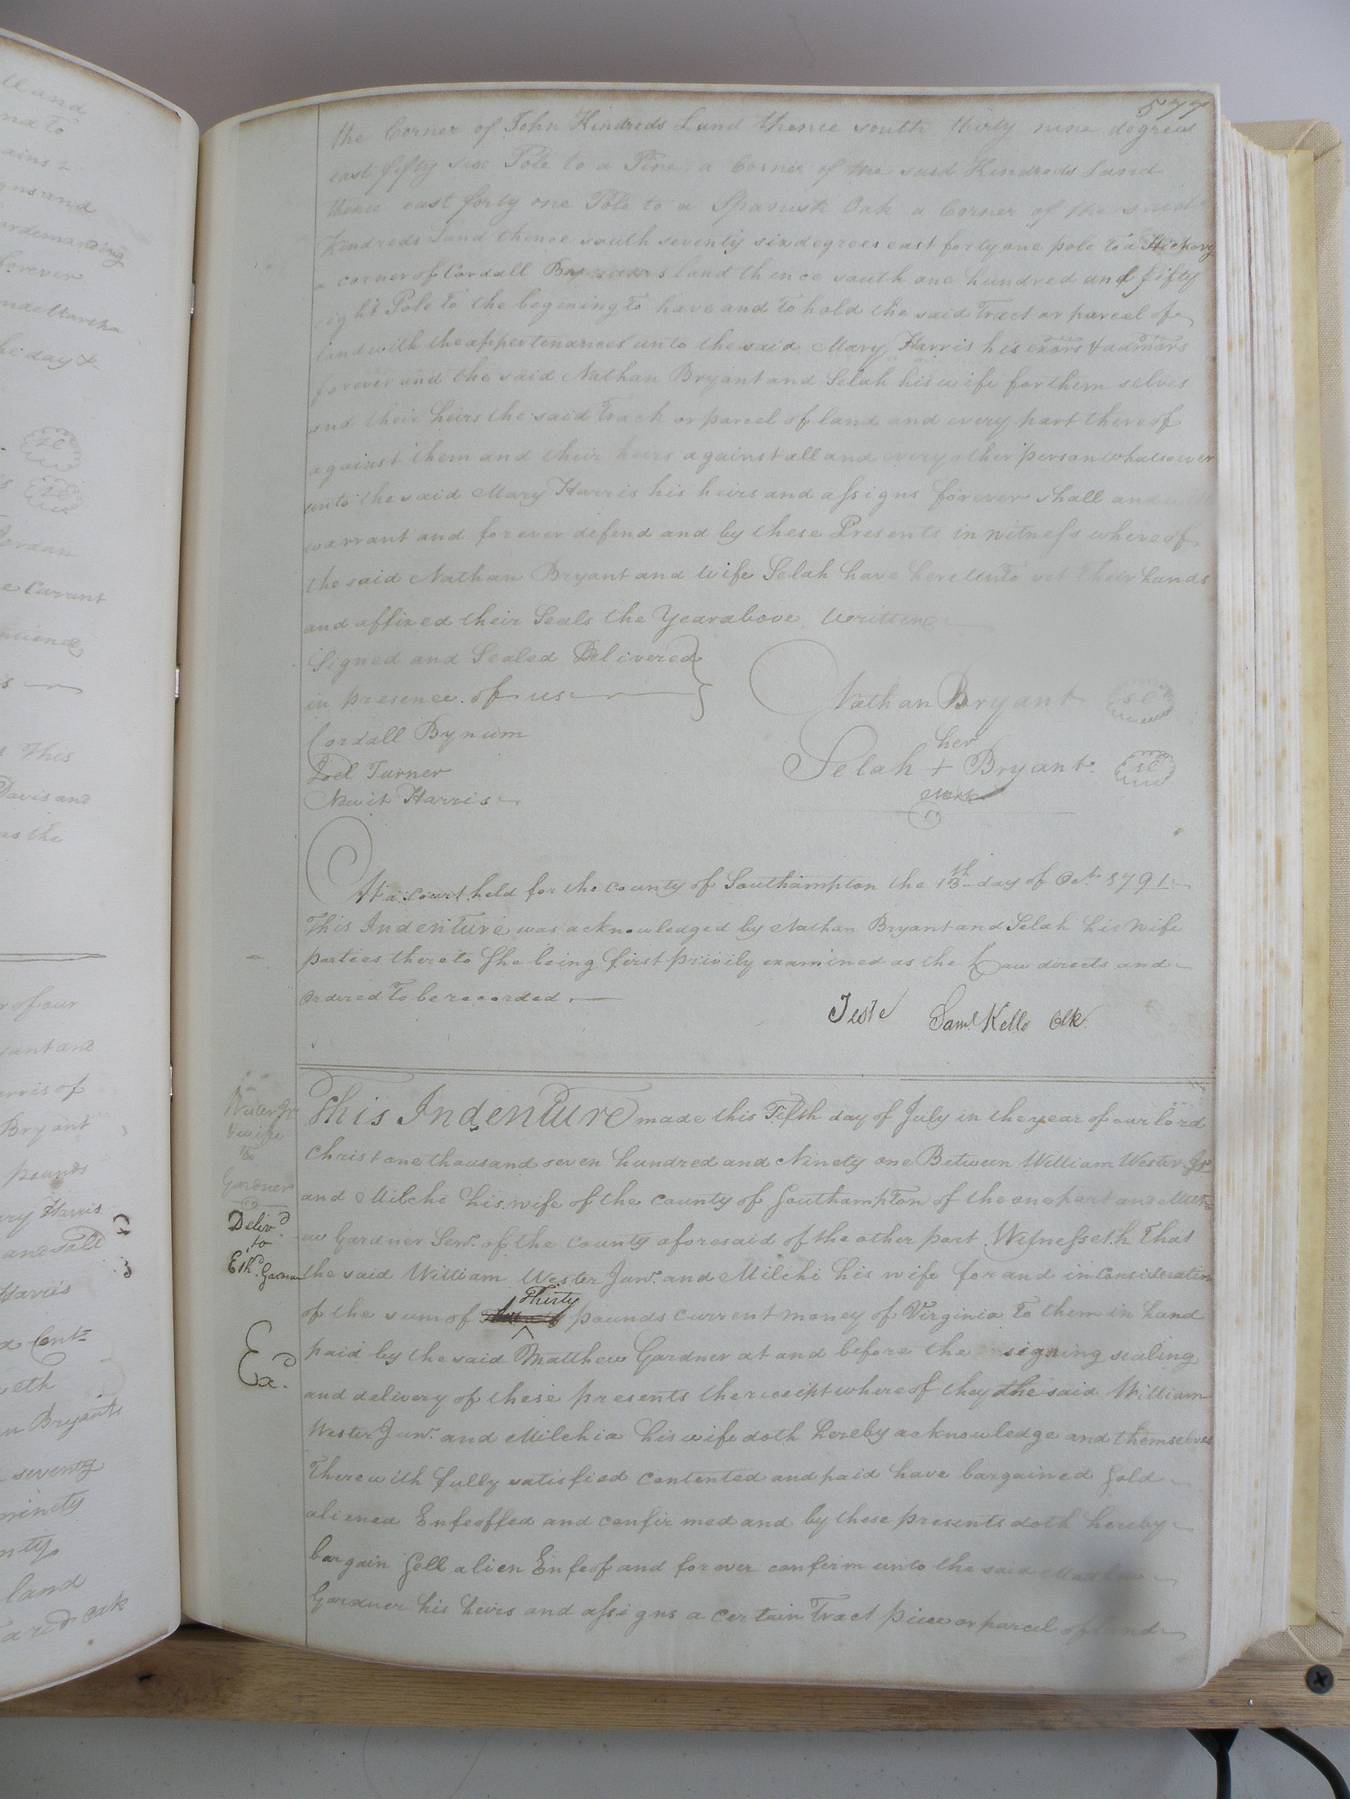 577
the Corner of John Kindreds Land thence south thirty nine degrees
east fifty six Pole to a Pine a Corner of the said Kindreds Land
thence east forty one Pole to a Spanish Oak a Corner of the said
Kindreds Land thence south seventy six degrees east forty one pole to a Hickory
a corner of Cordall Bynums land thence south one hundred and fifty
eight Pole to the begening to have and to hold the said Tract or parcel of
land with the appertenances unto the said Mary Harris his exors & admors
forever and the said Nathan Bryant and Selah his wife for them selves
and their heirs the said Track or parcel of land and every part thereof
against them and their heirs against all and every other person whatsoever
unto the said Mary Harris his heirs and assigns forever shall and
warrant and forever defend and by these Presents in witness whereof
the said Nathan Bryant and wife Selah have hereunto set their hands
and affixed their Seals the Year above written
Signed and Sealed Delivered
in presence of us
Nathan Bryant
Cordall Bynum
her
Selah + Bryant
mark
Joel Turner
Newit Harris
At a Court held for the county of Southampton the 13th day of Oct. 1791
This Indenture was acknowledged by Nathan Bryant and Selah his wife
parties thereto She being first privily examined as the Law directs and
ordered to be recorded.
Teste Saml. Kello Clk.
Wester Jr.
& wife
to
Gardner
Delivd.
to
Ethd. Gardner
Exd.
This Indenture made this Fifth day of July in the year of our lord
Christ one thousand seven hundred and Ninety one Between William Wester Jr.
and Milche his wife of the county of Southampton of the one part and Matt
ew Gardner Senr. of the county aforesaid of the other part Witnesseth That
the said William Wester Junr. and Milchi his wife for and in Consideration
Thirty
of the sum of pounds current money of Virginia to them in hand
paid by the said Matthew Gardner at and before the signing sealing
and delivery of these presents the receipt whereof they the said William
Wester Junr. and Milchia his wife doth hereby acknowledge and themselves
Therewith fully satisfied contented and paid have bargained Sold
aliened Enfeoffed and confirmed and by these presents doth hereby
bargain Sell alien Enfeof and forever confirm unto the said Mathew
Gardner his heirs and assigns a certain Tract piece or parcel of land